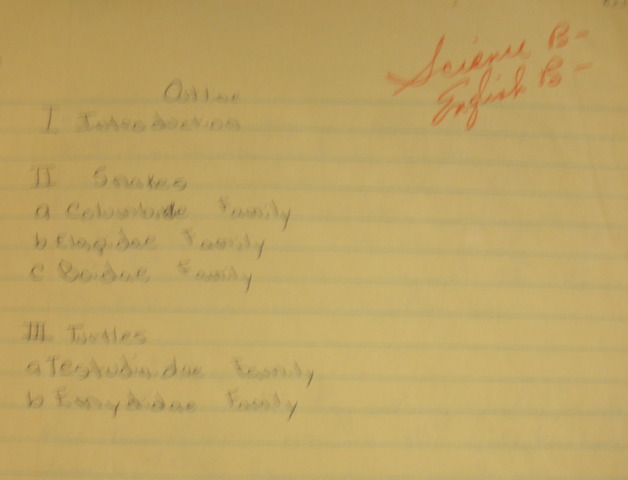 Science B-
English B-
Outline
I Introduction
II Snakes
a Colubridae Family
b Elapidae Family
c Boidae Family
III Turtles
a Testudinidae Family
b Emydidae Family